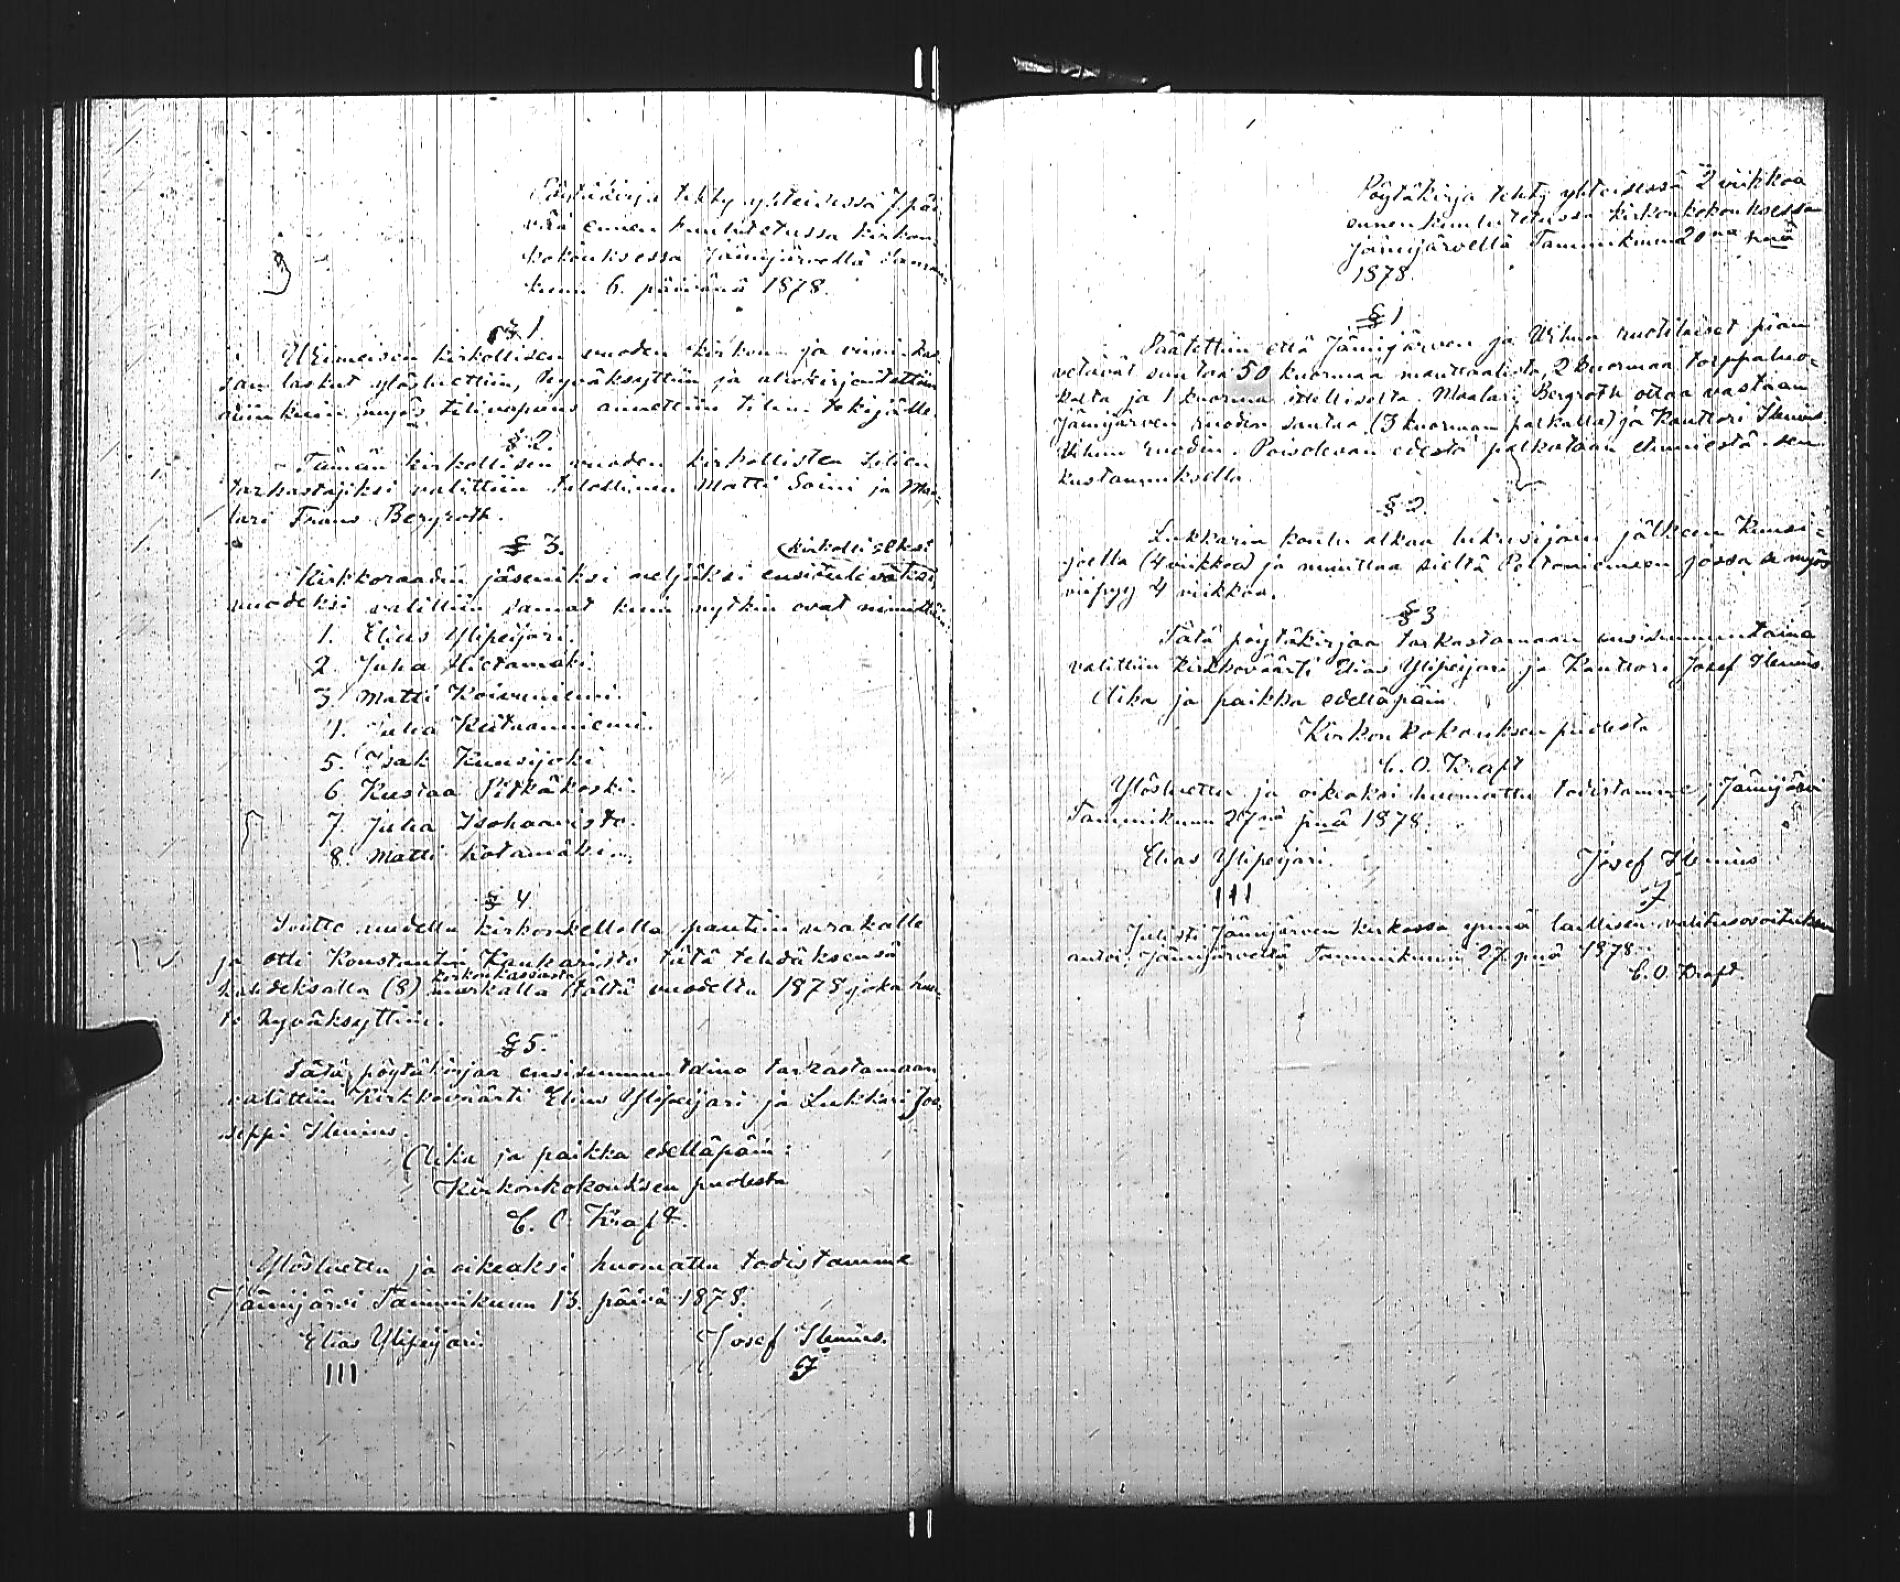 Pöytäkirja tehty yhteisessä 7 päi-
vää ennen kuulutetussa kirkon-
kokouksessa Jämijärvellä Tammi-
kuun 6. päivänä 1878.
§ 1.
Viimeisen kirkollisen vuoden kirkon- ja viinikas-
san laskut ylösluettiin, hyväksyttiin ja allekirjoitettiin
niinkuin myös tilinvapaus annettiin tilin tekijälle.
§ 2.
Tämän kirkollisen vuoden kirkollisten tilien
tarkastajiksi valittiin talollinen Matti Soini ja Maa-
lari Frans Bergroth.
§ 3.
kirkolliseksi
Kirkkoraadin jäseniksi neljäksi ensitulevaksi
vuodeksi valittiin samat kuin nytkin ovat nimittäin:
1. Elias Ylipeijari.
2. Juha Hietamäki.
3. Matti Koivuniemi.
4. Juha Kiitaanniemi.
5. Isak Kuusijoki
6. Kustaa Pitkäkoski.
7. Juha Isohaaristo.
8. Matti Kotamäki.
§ 4
Soitto uudella kirkonkellolla pantiin urakalle
ja otti Konstantin Kankaristo tätä tehdäksensä
kirkonkassasta
kahdeksalla (8) markalla tältä vuodelta 1878 joka huu-
to hyväksyttiin.
§ 5.
Tätä pöytäkirjaa ensisunnuntaina tarkastamaan
valittiin Kirkkoväärti Elias Ylipeijari ja Lukkari Joo-
seppi Stenius.
Aika ja paikka edelläpäin:
Kirkonkokouksen puolesta
C. O. Kraft.
Ylösluettu ja oikeaksi huomattu todistamme
Jämijärvi Tammikuun 13. päivä 1878.
Elias Ylipeijari. Josef Stenius.
III
Pöytäkirja tehty yhteisessä 2 viikkoa
ennen kuulutetussa kirkonkokouksessa
Jämijärvellä Tammikuun 20nä pnä
1878.
§ 1
Päätettiin että Jämijärven ja Vihun ruotilaiset pian
vetävät santaa 50 kuormaa manttaalista, 2 kuormaa torppaluo-
kalta ja 1 kuorma itelliseltä. Maalari Bergroth ottaa vastaan
Jämijärven ruodin santaa (3 kuorman palkalla) ja Kanttori Stenius
Vihun ruodin. Poisolevan edestä palkataan ehomiestä sen
kustannuksella.
§ 2.
Lukkarin koulu alkaa lukusijain jälkeen Kuusi-
joella (4 viikkoa) ja muuttaa sieltä Peltoniemeen jossa se myös
viipyy 4 viikkoa.
§ 3
Tätä pöytäkirjaa tarkastamaan ensisunnuntaina
valittiin kirkkoväärti Elias Ylipeijari ja Kanttori Josef Stenius.
Aika ja paikka edelläpäin
Kirkonkokouksen puolesta
C. O. Kraft
Ylösluettu ja oikeaksi huomattu todistamme; Jämijärvi
Tammikuun 27nä pnä 1878.
Elias Ylipeijari. Josef Stenius
III
Julisti Jämijärven kirkossa ynnä laillisen valitusosoituksen
antoi, Jämijärvellä Tammikuun 27 pnä 1878.
C. O. Kraft.